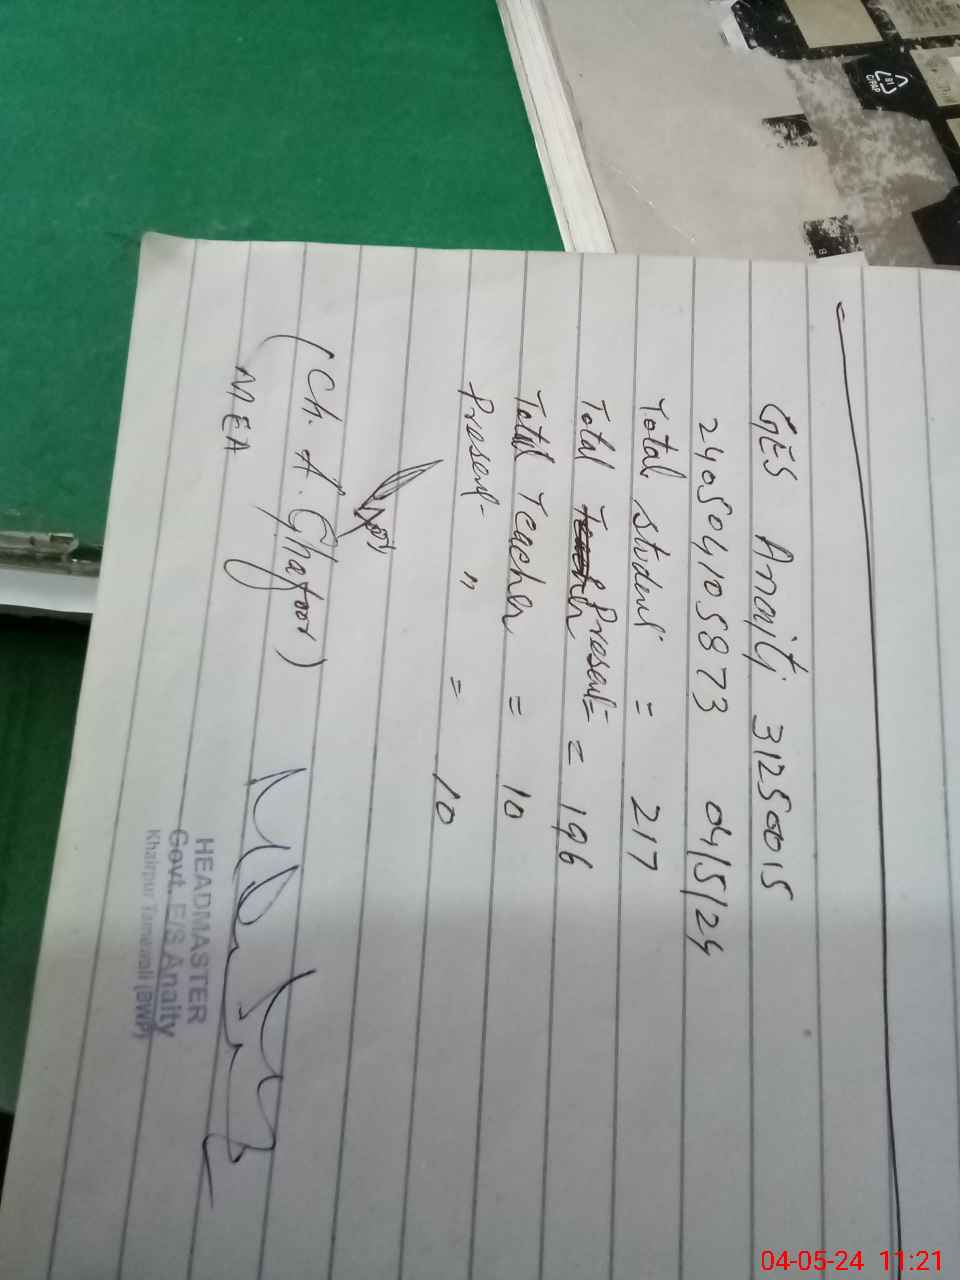 GES Anaiti 31250015
240504105873 04/5/24
Total student = 217
Total Teacher Present = = 196
Total Teacher = 10
Present " = 10
(Ch. A. Ghafoor)
MEA
HEADMASTER
Govt. E/S Anaity
Khairpur Tamewali (BWP)
04-05-24 11:21